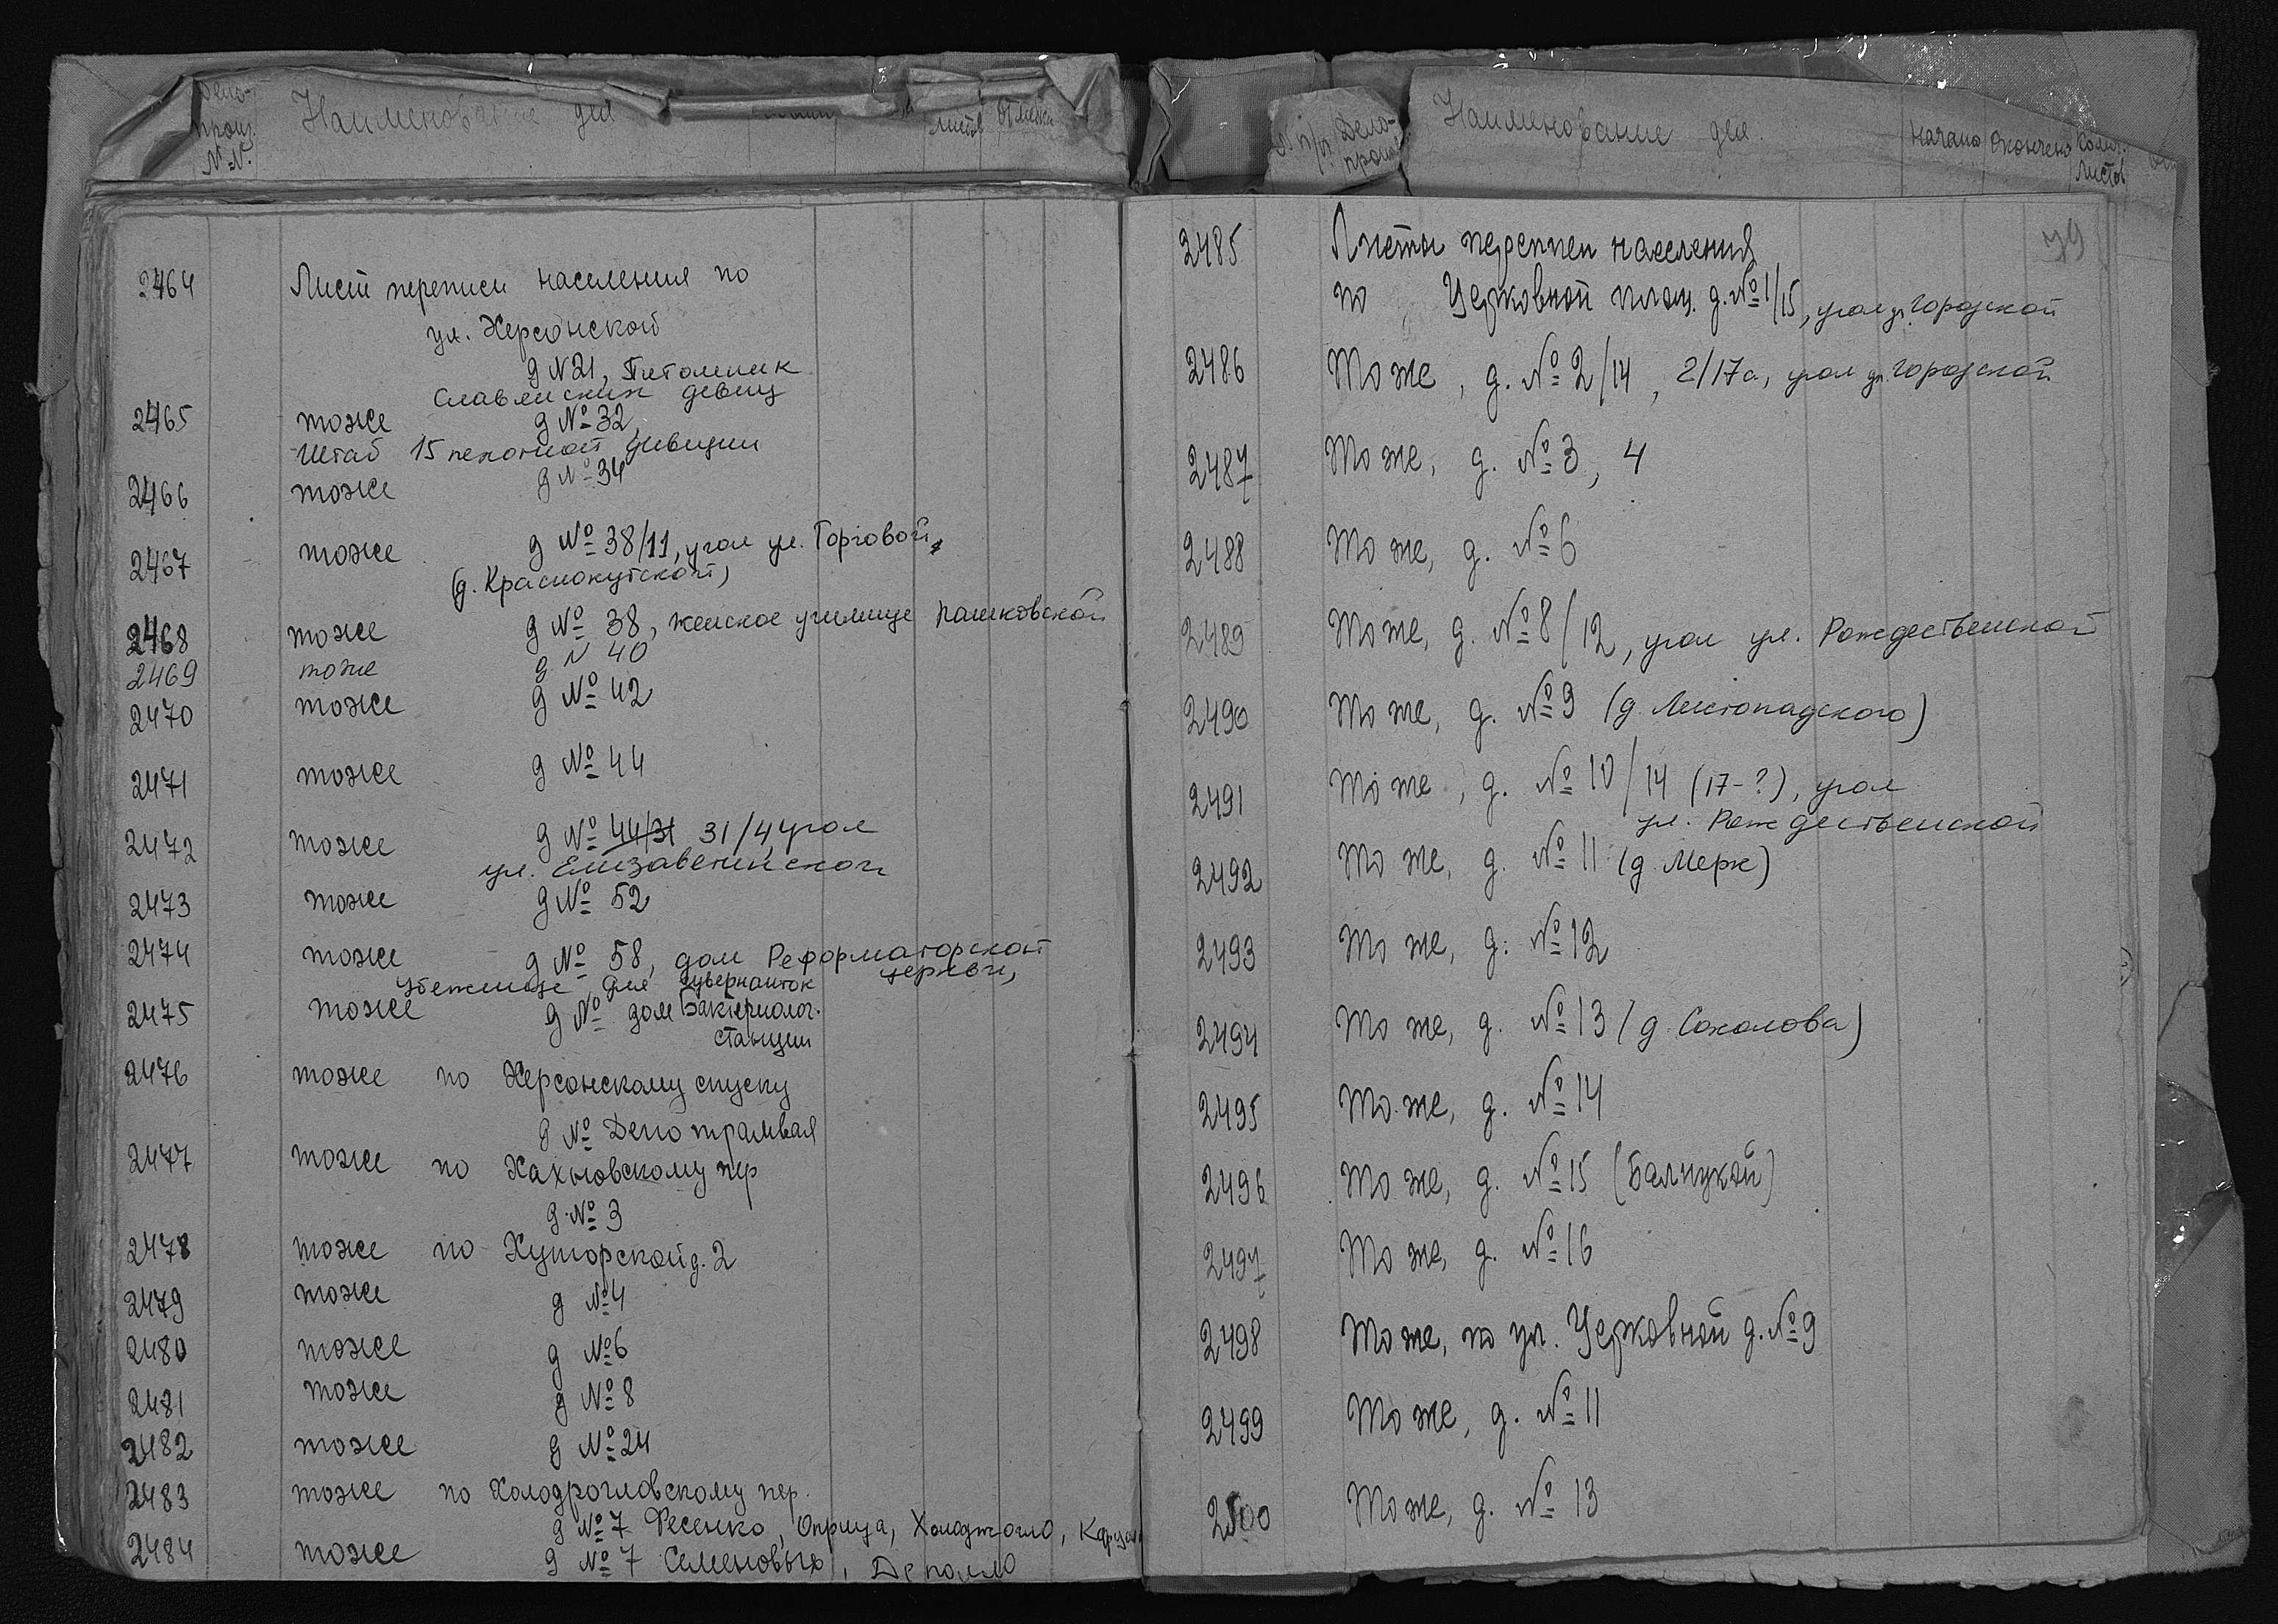 Дело-
произ.
№№
Наименование дел
листов
Отметки
2464 Лист переписи населения по
ул. Херсонской
д N 21, Питомник
Славянских девиц
2465 тоже д № 32,
Штаб 15 пехотной дивизии
2466 тоже д № 34
2467 тоже д № 38/11, угол ул. Торговой,
(д. Краснокутской)
2468 тоже д № 38, женское училище Пашковской
2469 тоже д N 40
2470 тоже д № 42
2471 тоже д № 44
2472 тоже д № 44/31 31/44 угол
ул. Елизаветинской
2473 тоже д № 52
2474 тоже д № 58, дом Реформаторской
церкви,
убежище для гувернанток
2475 тоже д № дом Бактериолог.
станции
2476 тоже по Херсонскому спуску
д № Депо трамвая
2477 тоже по Кахновскому пер
д. № 3
2478 тоже по Хуторской д. 2
2479 тоже д № 4
2480 тоже д № 6
2481 тоже д № 8
2482 тоже д № 24
2483 тоже по Холодрогловскому пер.
д № 7 Фесенко, Оприца,
2484 тоже д № 7 Семеновых, Деполло
п/п
Дело-
произ
Наименование дел.
Начато
Окончено
Колич.
Листов
79
2485 Листы переписи населения
по Церковной площ. д. № 1/15, угол ул. Городской
2486 То же, д. № 2/14, 2/17а, угол ул. Городской
2487 То же, д. № 3, 4
2488 То же, д. № 6
2489 То же, д. № 8/12, угол ул. Рождественской
2490 То же, д. № 9 (д. Листопадского)
2491 То же, д. № 10/14 (17-?), угол
ул. Рождественской
2492 То же, д. № 11 (д. Мерк)
2493 То же, д. № 12
2494 То же, д. № 13 (д. Соколова)
2495 То же, д. № 14
2496 То же, д. № 15 (Балицкой)
2497 То же, д. № 16
2498 То же, по ул. Церковной д. № 9
2499 То же, д. № 11
2500 То же, д. № 13